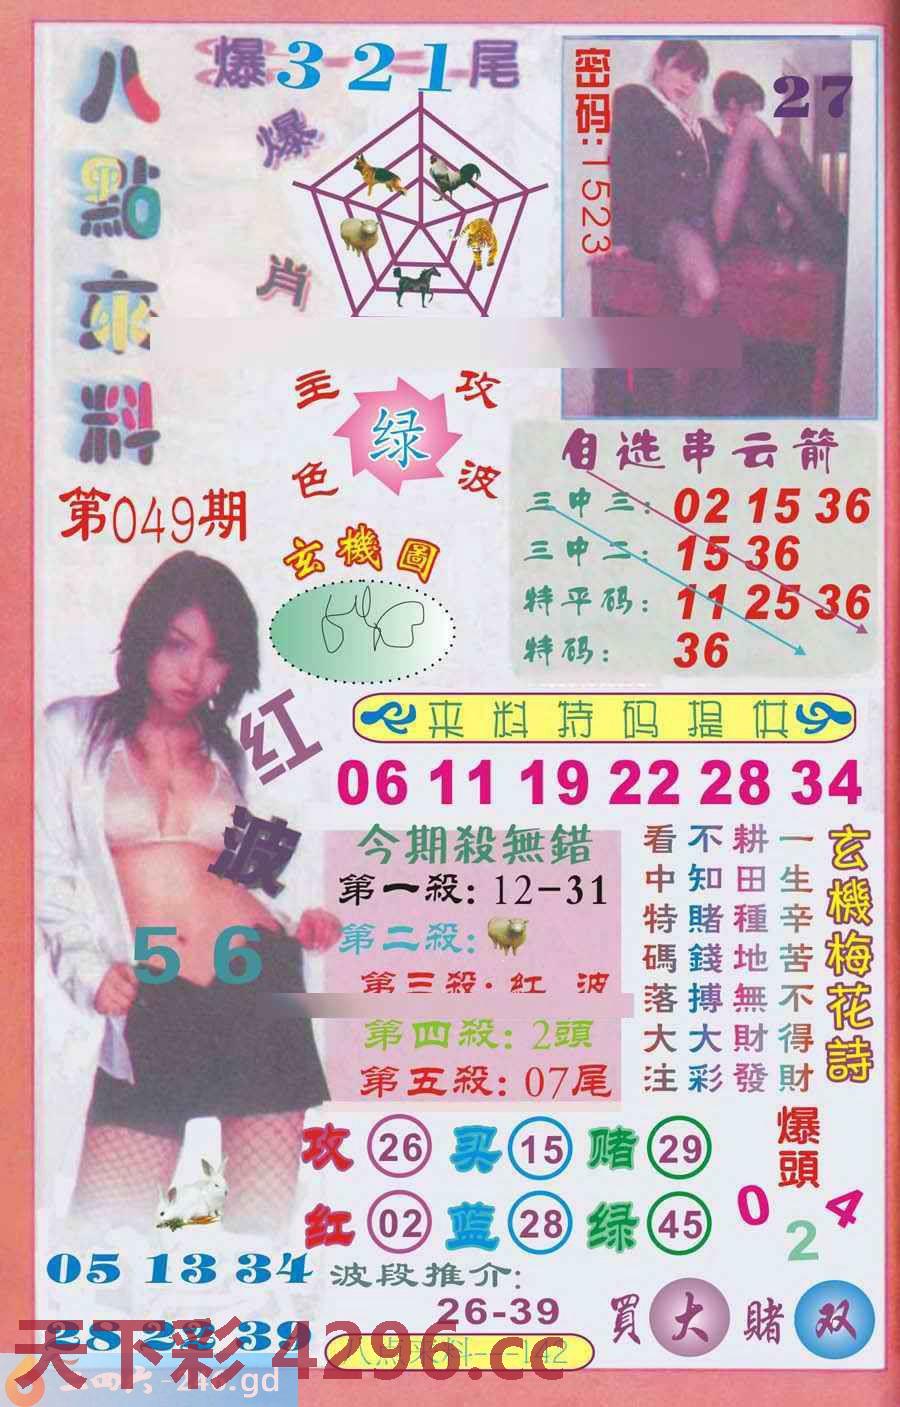 八點來料
爆321尾
爆肖
密码:1523
27
主攻
绿
色波
第049期
玄機圖
自选串云箭
三中三: 02 15 36
三中二: 15 36
特平码: 11 25 36
特码: 36
红波
56
来料特码提供
06 11 19 22 28 34
今期殺無錯
第一殺: 12-31
第二殺:
第三殺: 紅 波
第四殺: 2頭
第五殺: 07尾
玄機梅花詩
一生辛苦不得財
耕田種地無財發
不知賭錢搏大彩
看中特碼落大注
攻 26 买 15 赌 29
红 02 蓝 28 绿 45
爆頭
0 2 4
05 13 34
28 22 39
波段推介:
26-39
買大赌双
八点来料---142
天下彩 4296.cc
-246.gd